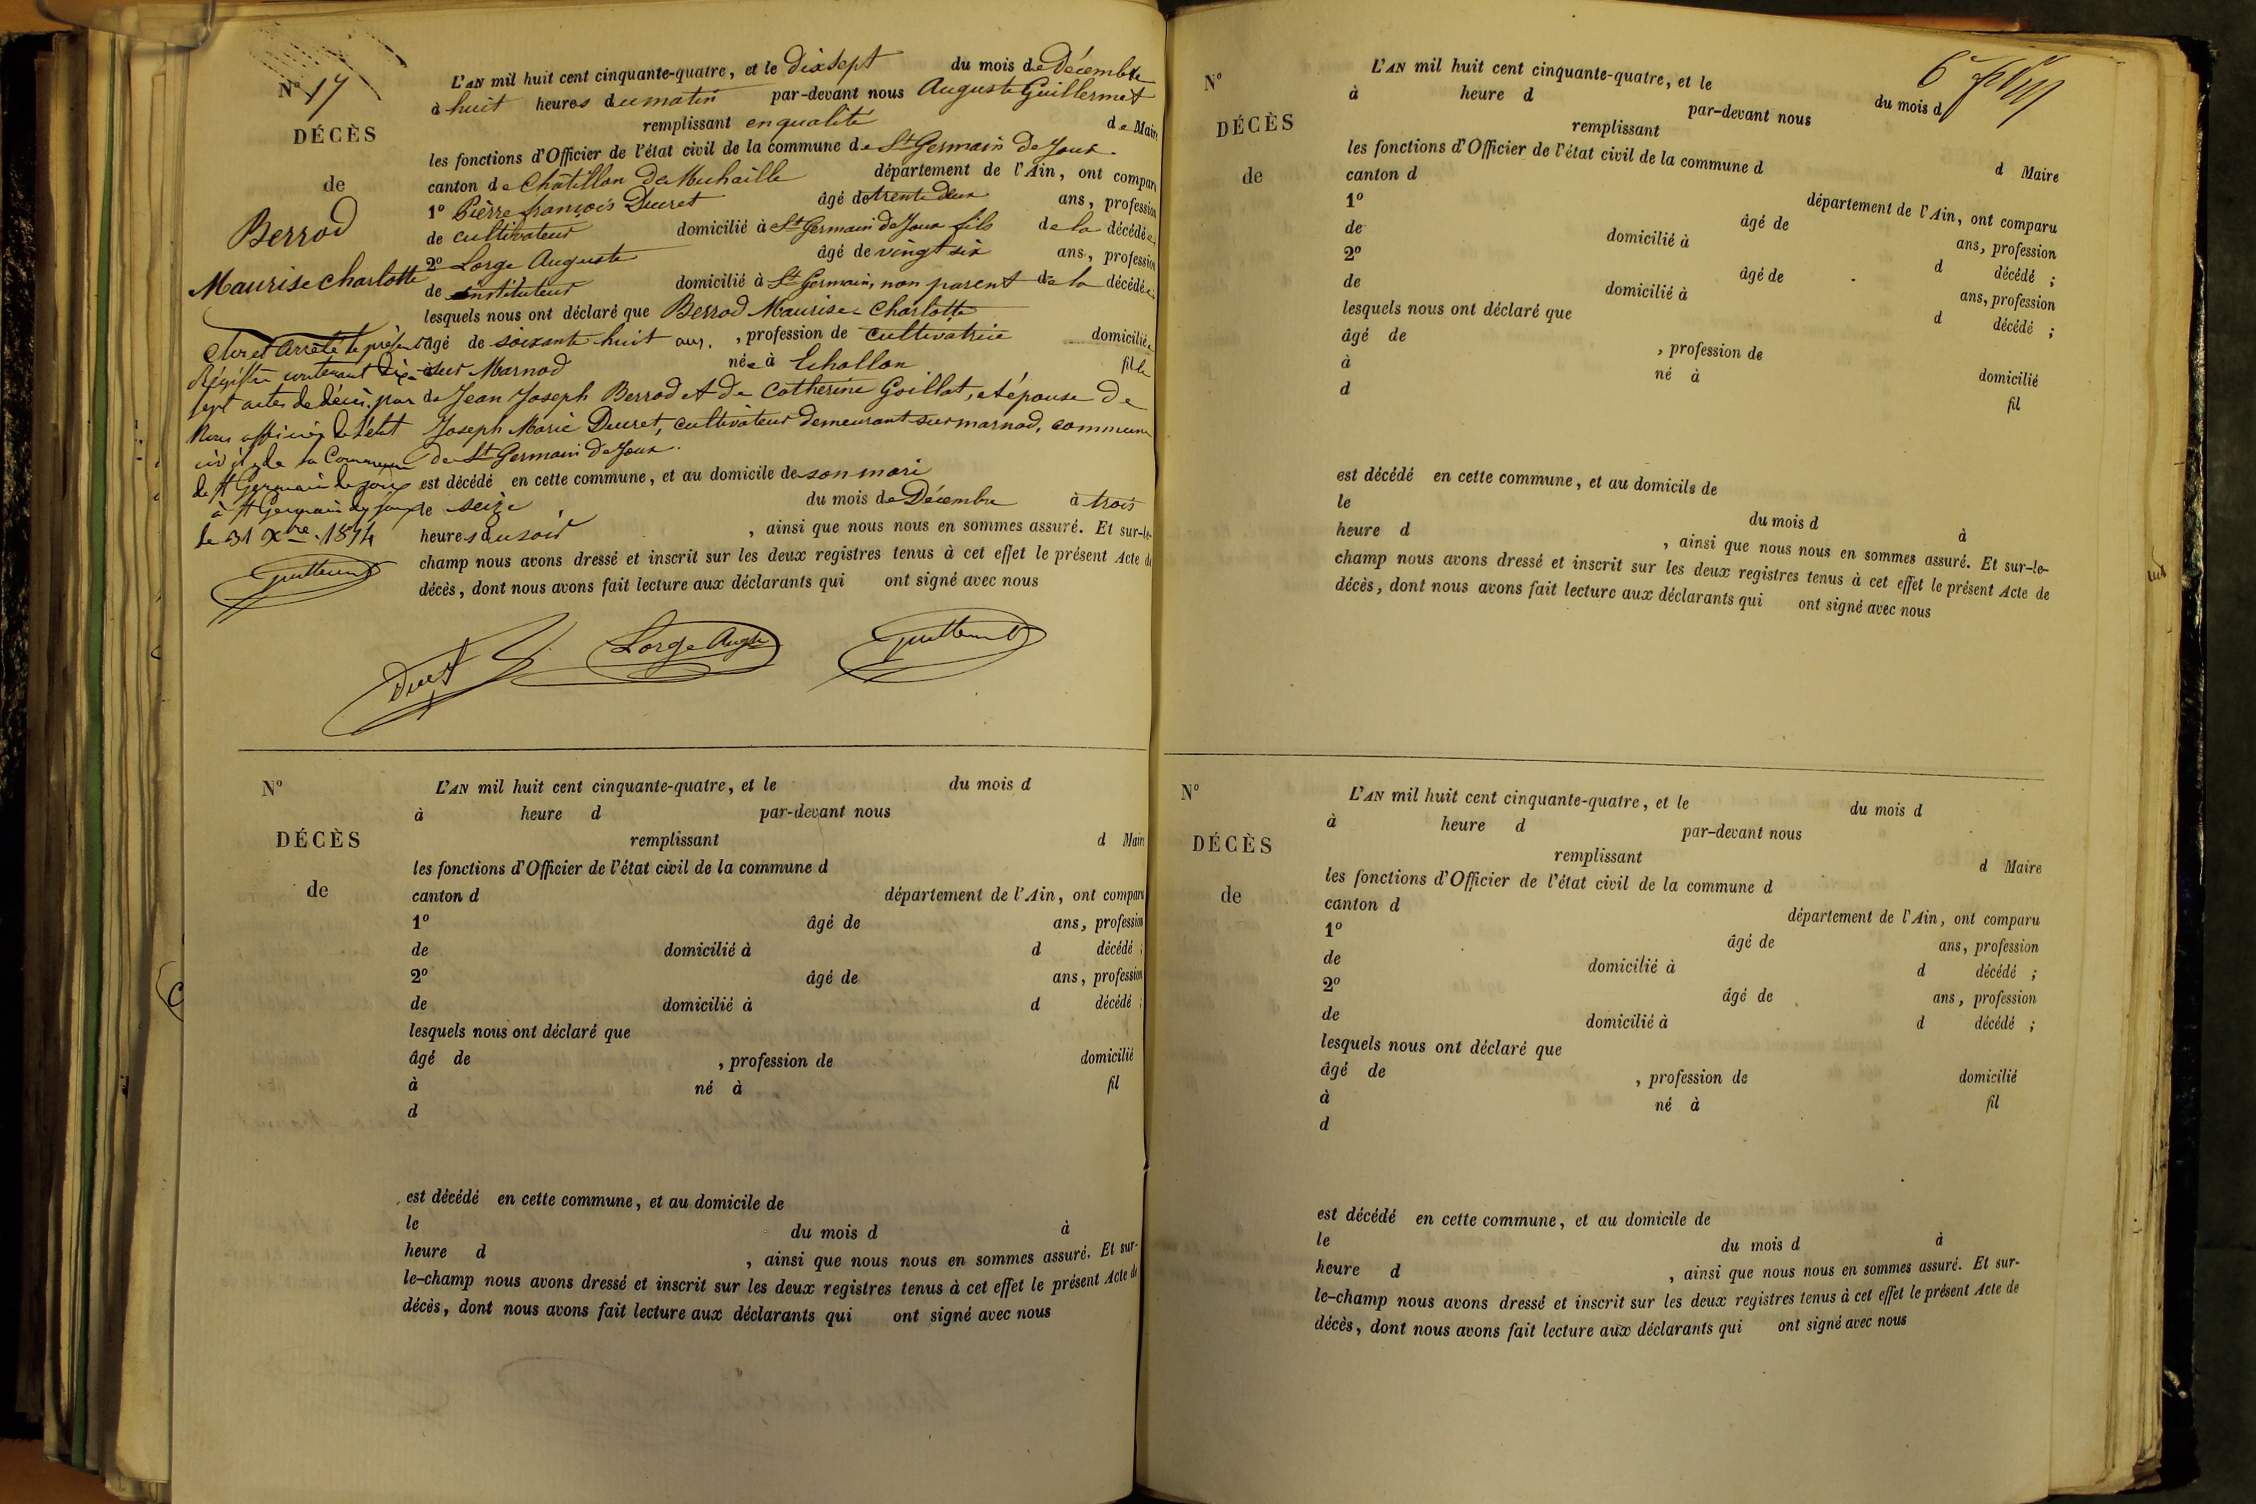 N° 17
DÉCÈS
de
Berrod
Maurise Charlotte
L'AN mil huit cent cinquante-quatre, et le dix sept du mois de Décembre
à huit heures du matin par-devant nous Auguste Guillermet
remplissant en qualité de Maire
les fonctions d'Officier de l'état civil de la commune de St Germain de Joux.
canton de Châtillon de Michaille département de l'Ain, ont comparu
1° Pierre françois Ducret âgé de trente deux ans, profession
de cultivateur domicilié à St Germain de Joux fils de la décédée
2° Lorge Auguste âgé de vingt six ans, profession
de instituteur domicilié à St Germain, non parent de la décédée.
lesquels nous ont déclaré que Berrod Maurise Charlotte
âgé de soixante huit ans. , profession de cultivatrice domiciliée
à sur Marnod née à Echallon fille
de Jean Joseph Berrod et de Catherine Goillot, et épouse de
Joseph Marie Ducret, cultivateur demeurant sur marnod, commune
de St Germain de Joux.
est décédé en cette commune, et au domicile de son mari
le seize du mois de Décembre à trois
heures du soir , ainsi que nous nous en sommes assuré. Et sur-le-
champ nous avons dressé et inscrit sur les deux registres tenus à cet effet le présent Acte de
décès, dont nous avons fait lecture aux déclarants qui ont signé avec nous
Clos et arrêté le présent
Régistre contenant dix
sept actes de décès, par
Nous officier de l'état
civil de la Commune
de St Germain de Joux
à St Germain de Joux
le 31 Xbre 1854
Guillermet
Ducret Lorge Augte Guillermet
N°
DÉCÈS
de
L'AN mil huit cent cinquante-quatre, et le du mois d
à heure d par-devant nous
remplissant d Maire
les fonctions d'Officier de l'état civil de la commune d
canton d département de l'Ain, ont comparu
1° âgé de ans, profession
de domicilié à d décédé ;
2° âgé de ans, profession
de domicilié à d décédé ;
lesquels nous ont déclaré que
âgé de , profession de domicilié
à né à fil
d
est décédé en cette commune, et au domicile de
le du mois d à
heure d , ainsi que nous nous en sommes assuré. Et sur-
le-champ nous avons dressé et inscrit sur les deux registres tenus à cet effet le présent Acte de
décès, dont nous avons fait lecture aux déclarants qui ont signé avec nous
N°
DÉCÈS
de
L'AN mil huit cent cinquante-quatre, et le du mois d
à heure d par-devant nous
remplissant d Maire
les fonctions d'Officier de l'état civil de la commune d
canton d département de l'Ain, ont comparu
1° âgé de ans, profession
de domicilié à d décédé ;
2° âgé de ans, profession
de domicilié à d décédé ;
lesquels nous ont déclaré que
âgé de , profession de domicilié
à né à fil
d
est décédé en cette commune, et au domicile de
le du mois d à
heure d , ainsi que nous nous en sommes assuré. Et sur-le-
champ nous avons dressé et inscrit sur les deux registres tenus à cet effet le présent Acte de
décès, dont nous avons fait lecture aux déclarants qui ont signé avec nous
N°
DÉCÈS
de
L'AN mil huit cent cinquante-quatre, et le du mois d
à heure d par-devant nous
remplissant d Maire
les fonctions d'Officier de l'état civil de la commune d
canton d département de l'Ain, ont comparu
1° âgé de ans, profession
de domicilié à d décédé ;
2° âgé de ans, profession
de domicilié à d décédé ;
lesquels nous ont déclaré que
âgé de , profession de domicilié
à né à fil
d
est décédé en cette commune, et au domicile de
le du mois d à
heure d , ainsi que nous nous en sommes assuré. Et sur-
le-champ nous avons dressé et inscrit sur les deux registres tenus à cet effet le présent Acte de
décès, dont nous avons fait lecture aux déclarants qui ont signé avec nous